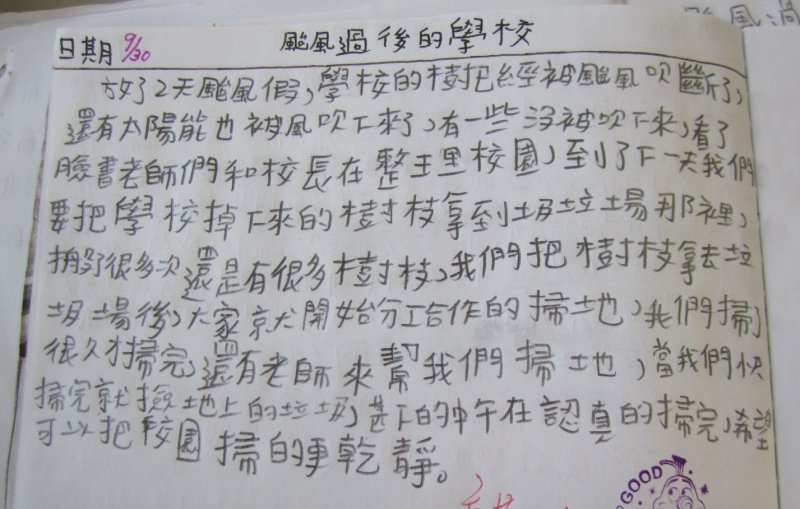 颱風過
日期 9/30 颱風過後的學校
放了2天颱風假,學校的樹把經被颱風吹斷了,
還有太陽能也被風吹下來了,有一些沒被吹下來,看了
臉書老師們和校長在整理校園,到了下一天我們
要把學校掉下來的樹枝拿到圾垃場那裡,
搬了很多次還是有很多樹枝,我們把樹枝拿去垃
圾場後,大家就開始分工合作的掃地,我們掃了
很久才掃完,還有老師來幫我們掃地,當我們快
掃完就撿地上的垃圾,甚下的中午在認真的掃完,希望
可以把校園掃的更乾靜。
GOOD